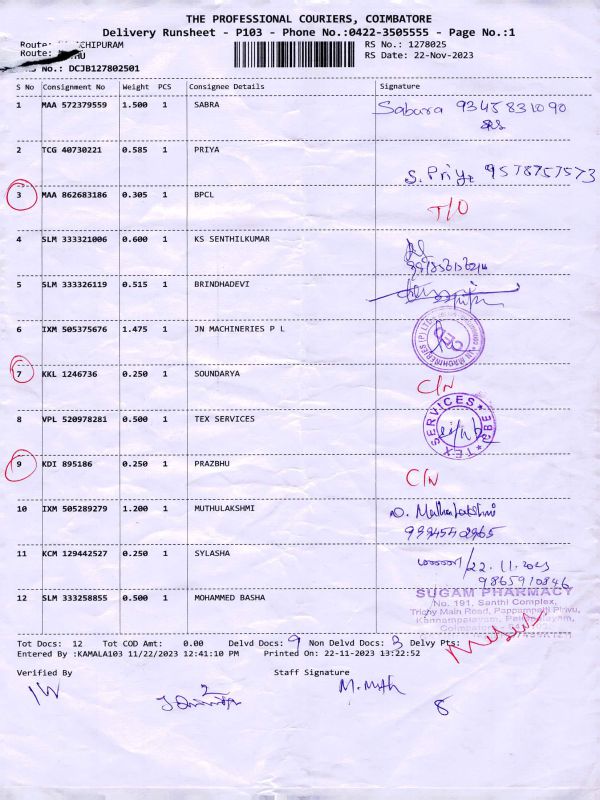 THE PROFESSIONAL COURIERS, COIMBATORE
Delivery Runsheet - P103 - Phone No.:0422-3505555 - Page No.:1
Route: CHIPURAM
RS No.: 1278025
Route:
RS Date: 22-Nov-2023
RS No.: DCJB127802501
S No Consignment No Weight PCS Consignee Details Signature
1 MAA 572379559 1.500 1 SABRA Sabara 9345831090
2 TCG 40730221 0.585 1 PRIYA S. Priya 9578757573
3 MAA 862683186 0.305 1 BPCL T/O
4 SLM 333321006 0.600 1 KS SENTHILKUMAR
5 SLM 333326119 0.515 1 BRINDHADEVI
6 IXM 505375676 1.475 1 JN MACHINERIES P L
7 KKL 1246736 0.250 1 SOUNDARYA C/N
8 VPL 520978281 0.500 1 TEX SERVICES TEX SERVICES * CBE *
9 KDI 895186 0.250 1 PRAZBHU C/N
10 IXM 505289279 1.200 1 MUTHULAKSHMI
11 KCM 129442527 0.250 1 SYLASHA 22.11.2023
9865910846
12 SLM 333258855 0.500 1 MOHAMMED BASHA
SUGAM PHARMACY
No. 191, Santhi Complex,
Trichy Main Road, Pappampatti Pirivu,
Kannampalayam,
Tot Docs: 12 Tot COD Amt: 0.00 Delvd Docs: 9 Non Delvd Docs: 3 Delvy Pts:
Entered By :KAMALA103 11/22/2023 12:41:10 PM Printed On: 22-11-2023 13:22:52
Verified By Staff Signature
M. Muth
8